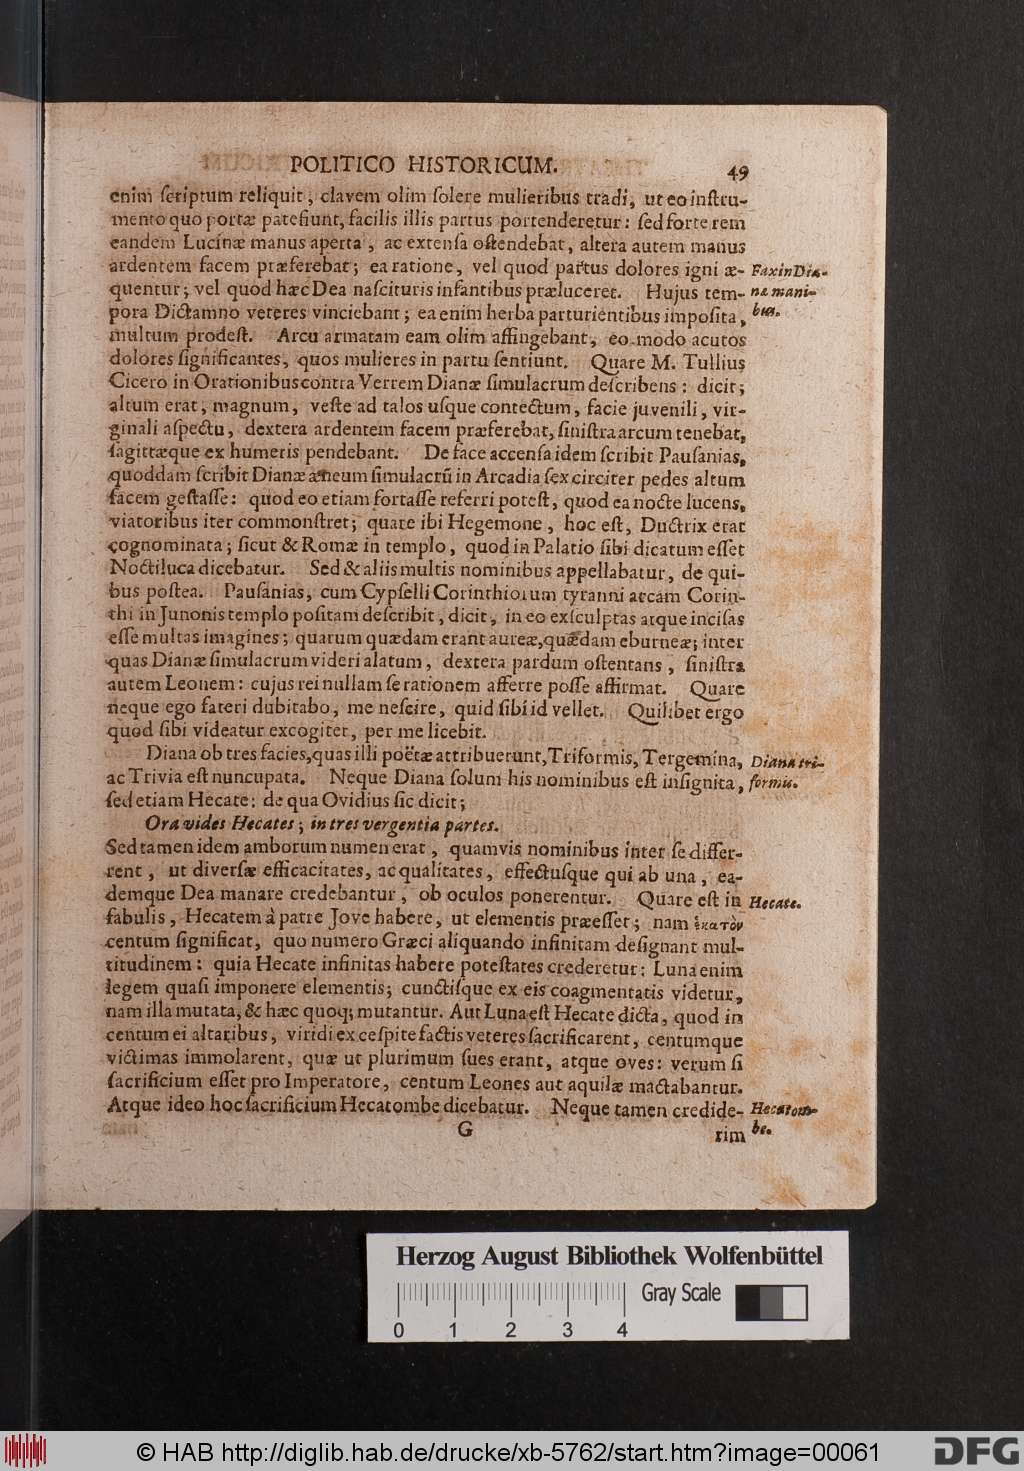 POLITICO HISTORICUM. 49
enim ſcriptum reliquit; clavem olim ſolere mulieribus tradi, ut eo inſtru-
mento quo portæ patefiunt, facilis illis partus portenderetur: ſed forte rem
eandem Lucinæ manus aperta, ac extenſa oſtendebat, altera autem manus
ardentem facem præferebat; ea ratione, vel quod partus dolores igni æ- Fax in Dia-
quentur; vel quod hæc Dea naſcituris infantibus præluceret. Hujus tem- næ mani-
pora Dictamno veteres vinciebant; ea enim herba parturientibus impoſita, bus.
multum prodeſt. Arcu armatam eam olim affingebant, eo modo acutos
dolores ſignificantes, quos mulieres in partu ſentiunt. Quare M. Tullius
Cicero in Orationibus contra Verrem Dianæ ſimulacrum deſcribens: dicit;
altum erat, magnum, veſte ad talos uſque contectum, facie juvenili, vir-
ginali aſpectu, dextera ardentem facem præferebat, ſiniſtra arcum tenebat,
ſagittæque ex humeris pendebant. De face accenſa idem ſcribit Pauſanias,
quoddam ſcribit Dianæ æneum ſimulacrũ in Arcadia ſex circiter pedes altum
facem geſtaſſe: quod eo etiam fortaſſe referri poteſt, quod ea nocte lucens,
viatoribus iter commonſtret; quare ibi Hegemone, hoc eſt, Ductrix erat
cognominata; ſicut & Romæ in templo, quod in Palatio ſibi dicatum eſſet
Noctiluca dicebatur. Sed & aliis multis nominibus appellabatur, de qui-
bus poſtea. Pauſanias, cum Cypſelli Corinthiorum tyranni arcam Corin-
thi in Junonis templo poſitam deſcribit, dicit, in eo exſculptas atque inciſas
eſſe multas imagines; quarum quædam erant aureæ, quædam eburneæ; inter
quas Dianæ ſimulacrum videri alatum, dextera pardum oſtentans, ſiniſtra
autem Leonem: cujus rei nullam ſe rationem afferre poſſe affirmat. Quare
neque ego fateri dubitabo, me neſcire, quid ſibi id vellet. Quilibet ergo
quod ſibi videatur excogitet, per me licebit.
Diana ob tres facies, quas illi poëtæ attribuerunt, Triformis, Tergemina, Diana tri-
ac Trivia eſt nuncupata. Neque Diana ſolum his nominibus eſt inſignita, formis.
ſed etiam Hecate: de qua Ovidius ſic dicit;
Ora vides Hecates; in tres vergentia partes.
Sed tamen idem amborum numen erat, quamvis nominibus inter ſe differ-
rent, ut diverſæ efficacitates, ac qualitates, effectuſque qui ab una, ea-
demque Dea manare credebantur, ob oculos ponerentur. Quare eſt in Hecate.
fabulis, Hecatem à patre Jove habere, ut elementis præeſſet; nam ἑκατὸν
centum ſignificat, quo numero Græci aliquando infinitam deſignant mul-
titudinem: quia Hecate infinitas habere poteſtates crederetur: Luna enim
legem quaſi imponere elementis; cunctiſque ex eis coagmentatis videtur,
nam illa mutata, & hæc quoq; mutantur. Aut Luna eſt Hecate dicta, quod in
centum ei altaribus, viridi ex ceſpite factis veteres ſacrificarent, centumque
victimas immolarent, quæ ut plurimum ſues erant, atque oves: verum ſi
ſacrificium eſſet pro Imperatore, centum Leones aut aquilæ mactabantur.
Atque ideo hoc ſacrificium Hecatombe dicebatur. Neque tamen credide- Hecatom-
G rim be.
Herzog August Bibliothek Wolfenbüttel
Gray Scale
0 1 2 3 4
© HAB http://diglib.hab.de/drucke/xb-5762/start.htm?image=00061 DFG